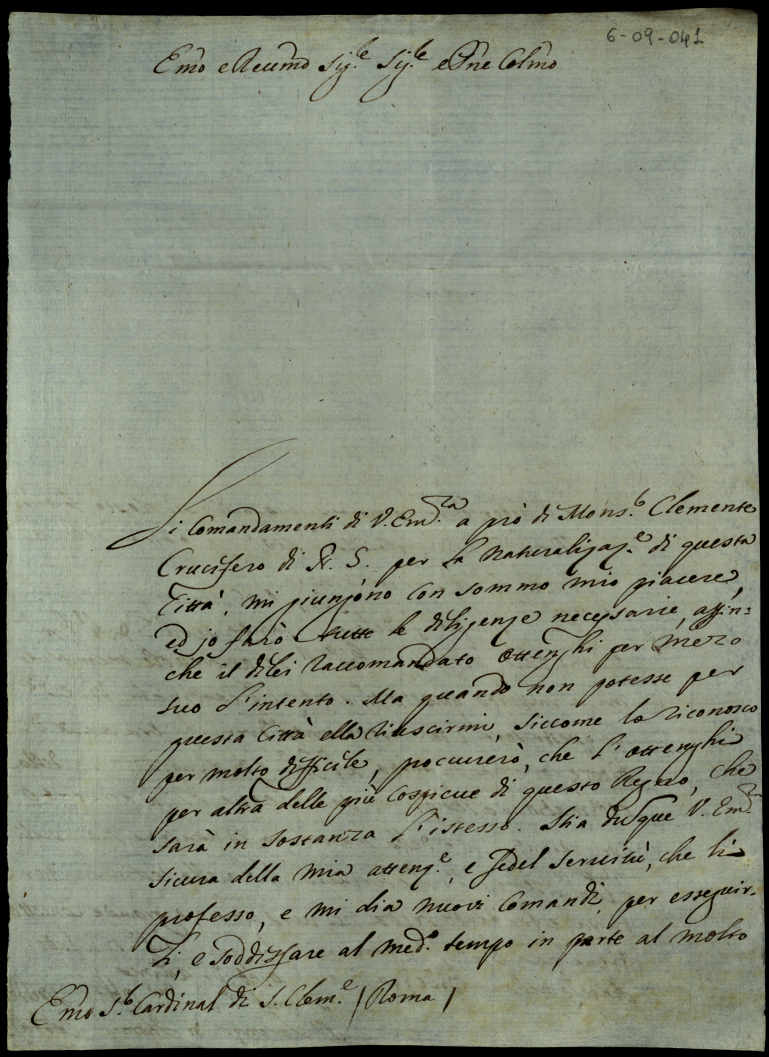 6-09-041
Emo e Revmo Sig.re Sig.re e Pne Colmo
Li Comandamenti di V. Em.za a prò di Mons.r Clemente
Crucifero di N. S. per la naturalizaz.e di questa
Città, mi giungono con sommo mio piacere,
ed jo farò tutte le diligenze necessarie, affin=
chè il dilei raccomandato ottenghi per mezo
suo l'intento. Ma quando non potesse per
questa Città ella riuscirmi, siccome lo riconosco
per molto difficile, procurerò, che l'ottenghi
per altra delle più cospicue di questo Regno, che
sarà in sostanza l'istesso. Stia dunque V. Em.za
sicura della mia attenz.e, e fedel servitù, che li
professo, e mi dia nuovi Comandi, per esseguir-
li, e soddisfare al med.o tempo in parte al molto
Emo S.r Cardinal di S. Clem.e /Roma/